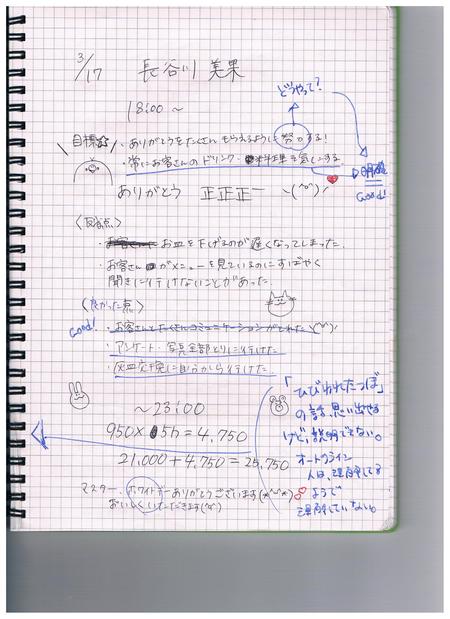 3/17 長谷川 美果
18:00 ~
どうやって?
目標☆
・ありがとうをたくさんもらえるように努力する!
・常にお客さんのドリンク・料理を気にする
明確
Good!
ありがとう 正正正一 ヽ(^o^)丿
〈反省点〉
・お皿を下げるのが遅くなってしまった。
・お客さんがメニューを見ているのにすばやく
聞きに行けないことがあった。
〈良かった点〉
Good!
・お客さんとたくさんコミュニケーションがとれた ヽ(^o^)丿
・アンケート・写真全部とりに行けた
・灰皿交換に自分から行けた
~23:00
950×5h=4,750
21,000+4,750=25,750
「ひびわれたつぼ」
の話、思い出せる
けど、説明できない。
オートクライン
人は、理解してる
ようで
理解していない。
マスター、ホワイトデーありがとうございます(*^^*)
おいしくいただきます(^o^)